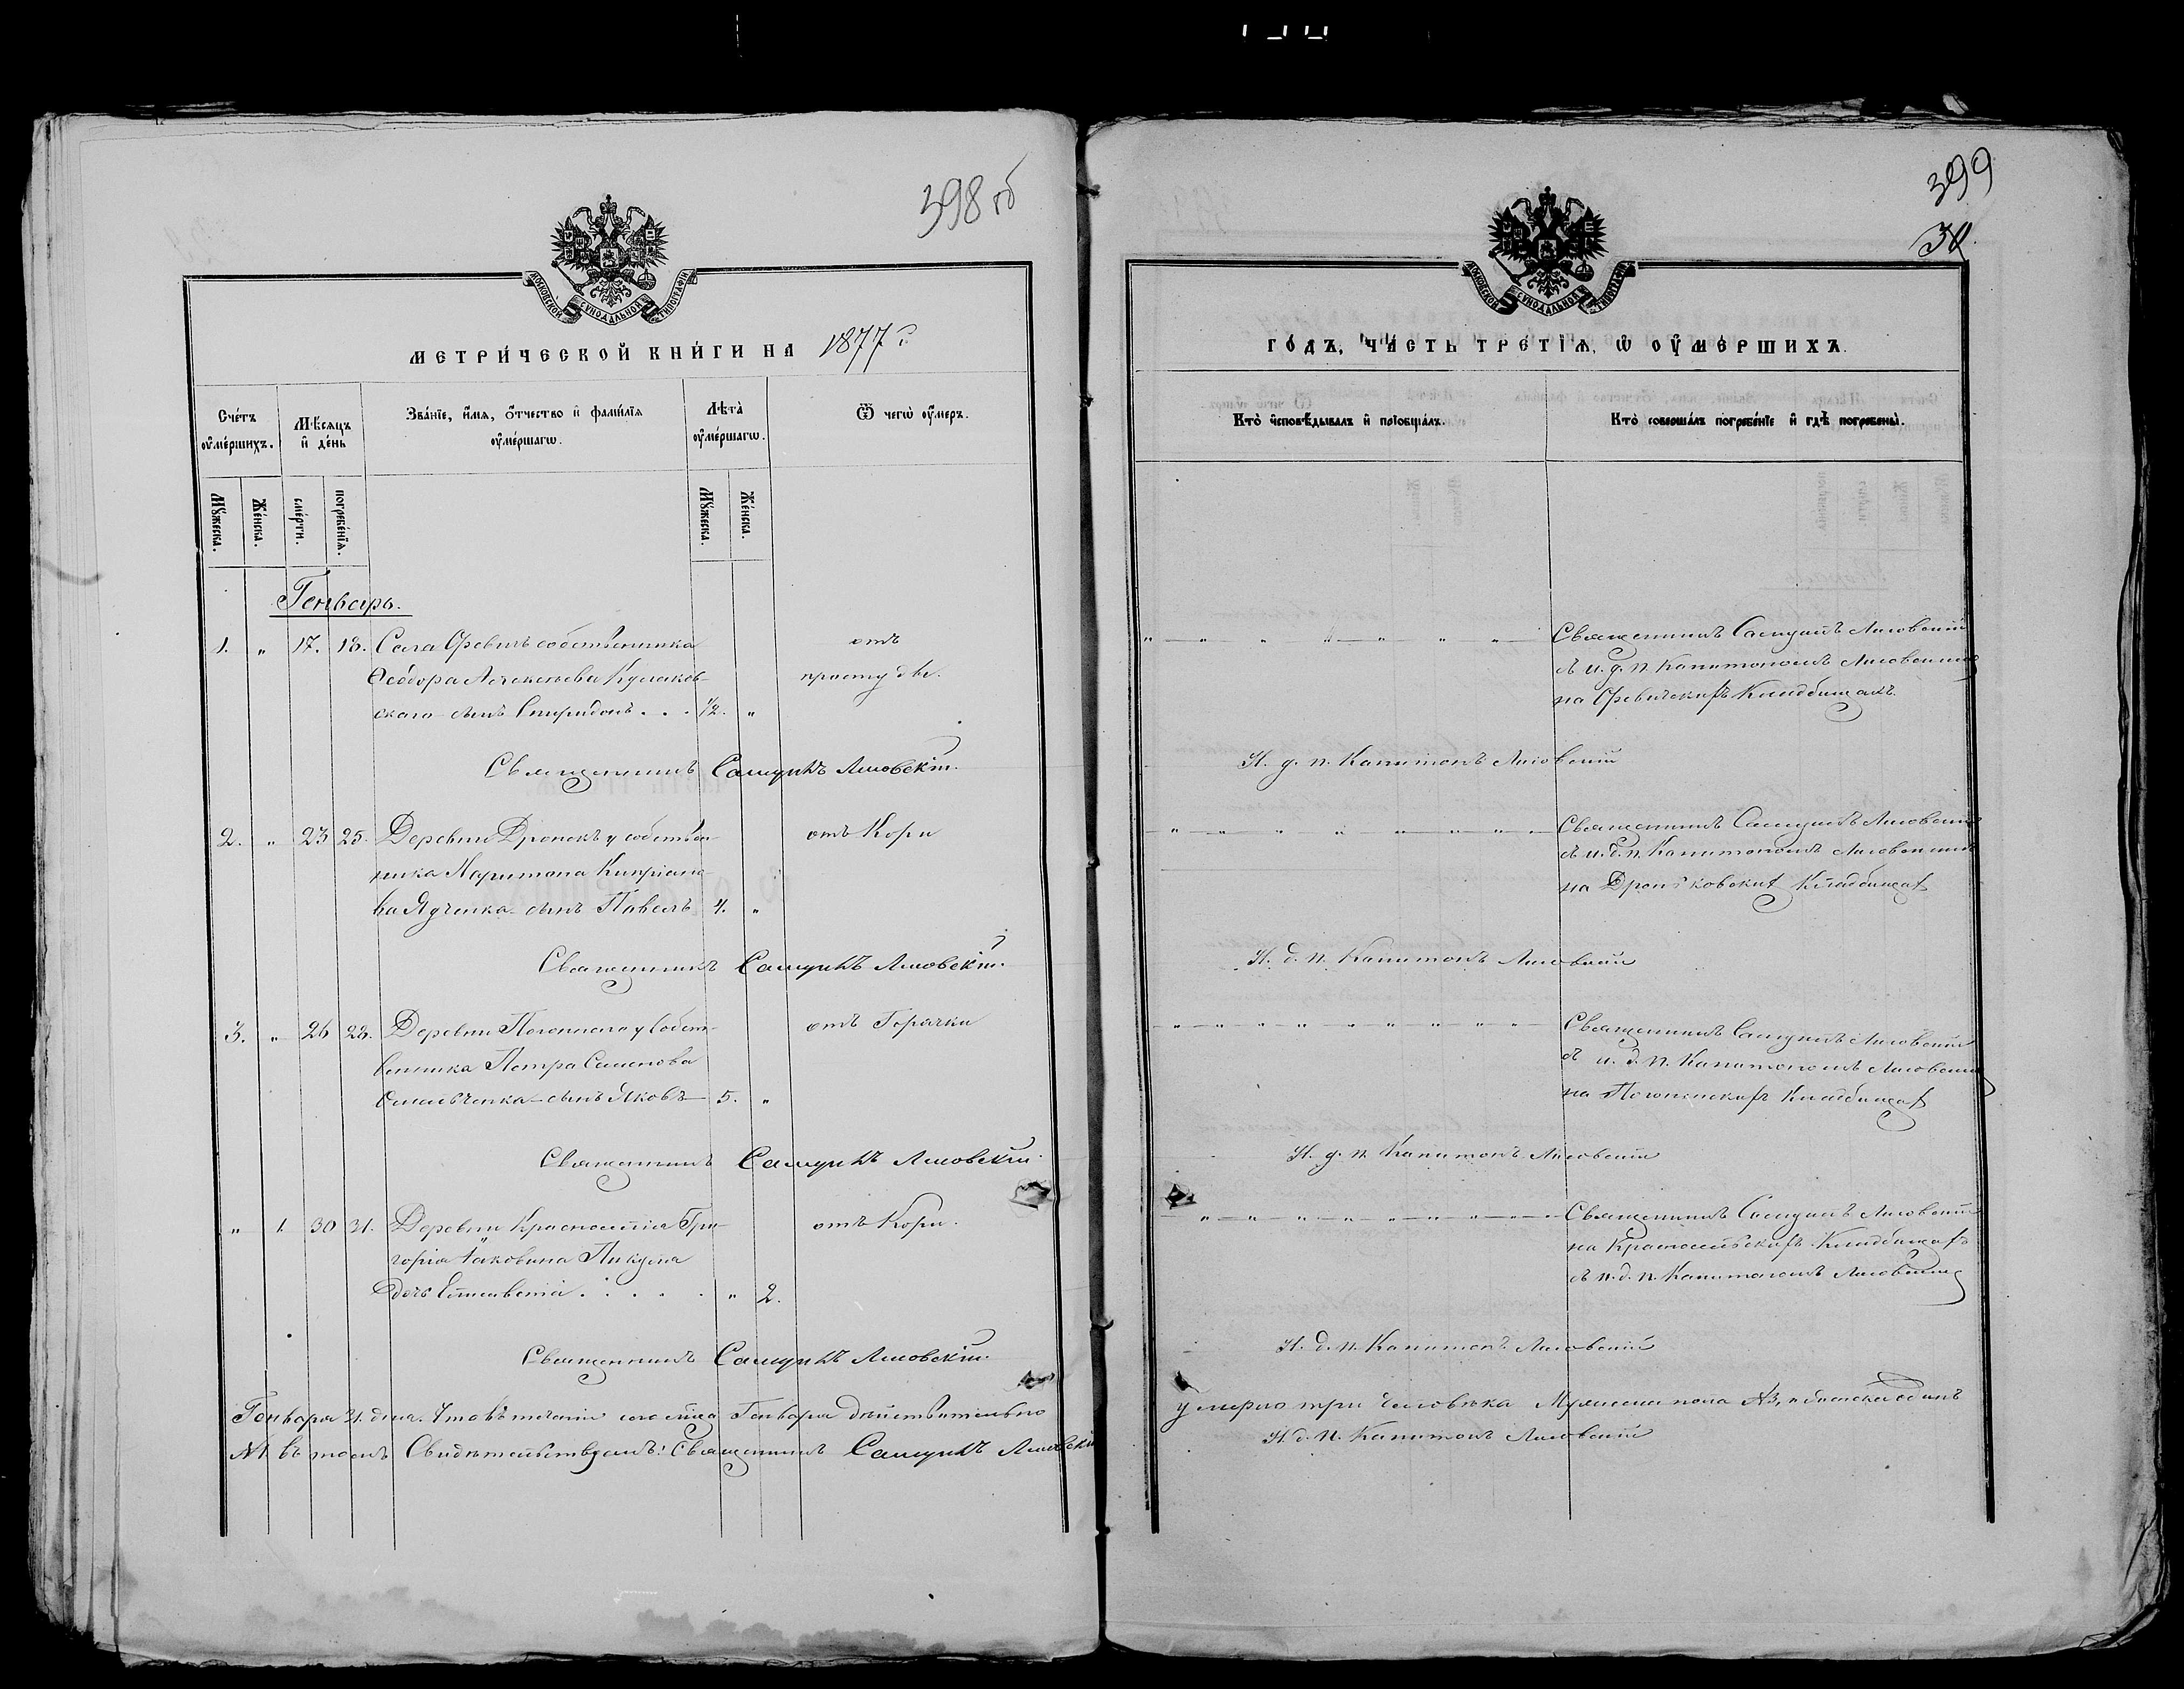 398 об
МОСКОВСКОЙ СѴНОДАЛЬНОЙ ТИПОГРАФІИ
МЕТРИ́ЧЕСКОЙ КНИ́ГИ НА 1877 г.
Сче́тъ оу҆ме́ршихъ.
Мѣ́сяцъ и҆ де́нь
Зва́нїе, и҆́мѧ, ѻ҆́тчество и҆ фами́лїѧ оу҆ме́ршагѡ.
Лѣ́та̀ оу҆ме́ршагѡ.
Ѿ чегѡ̀ оу҆́меръ.
Мꙋ́жеска.
Же́нска.
сме́рти.
погребе́нїѧ.
Мꙋ́жеска.
Же́нска.
Генварь.
1. „ 17. 18. Села Оревичъ собственника отъ
Ѳеодора Алексѣева Кулаков- простуды.
скаго сынъ Спиридонъ . . . 1/2. „
Священникъ Самуилъ Лисовскій.
2. „ 23 25. Деревни Дронекъ у собствен- отъ Кори
ника Харитона Кипріано
ва Ядченка сынъ Павелъ 4. „
Священникъ Самуилъ Лисовскій.
3. „ 26 28. Деревни Погоннаго у собст- отъ Горячки
венника Петра Семенова
сынъ Яковъ 5. „
Священникъ Самуилъ Лисовскій.
„ 1. 30 31. Деревни Красноселья Гри- отъ Кори.
горія Іаковина Пикуля
дочь Елисавета . . . . . „ 2.
Священникъ Самуилъ Лисовскій.
Генваря 31. дня. Что въ теченіи сего мѣсяца Генваря дѣйствительно
№1. въ томъ Свидѣтельствуемъ: Священникъ Самуилъ Лисовскій
399
МОСКОВСКОЙ СѴНОДАЛЬНОЙ ТИПОГРАФІИ
ГО́ДЪ, ЧА́СТЬ ТРЕ́ТЇѦ, Ѡ ОУ҆МЕ́РШИХЪ.
Кто̀ и҆сповѣ́дывалъ и҆ прїѡбща́лъ.
Кто̀ соверша́лъ погребе́нїе и҆ гдѣ̀ погребены̀.
Священникъ Самуилъ Лисовскій
съ и. д. п. Капитономъ Лисовскимъ
на Оревичскихъ Кладбищахъ.
И. д. п. Капитонъ Лисовскій
Священникъ Самуилъ Лисовскій
съ и. д. п. Капитономъ Лисовскимъ
на Дроньковскихъ Кладбищахъ
И. д. п. Капитонъ Лисовскій
Священникъ Самуилъ Лисовскій
съ и. д. п. Капитономъ Лисовскимъ
на Погонскихъ Кладбищахъ
И. д. п. Капитонъ Лисовскій
Священникъ Самуилъ Лисовскій
на Красносельскихъ Кладбищахъ
съ и. д. п. Капитономъ Лисовскимъ
И. д. п. Капитонъ Лисовскій
умерло три человѣка Мужеска пола №3, а женска одинъ
И. д. п. Капитонъ Лисовскій